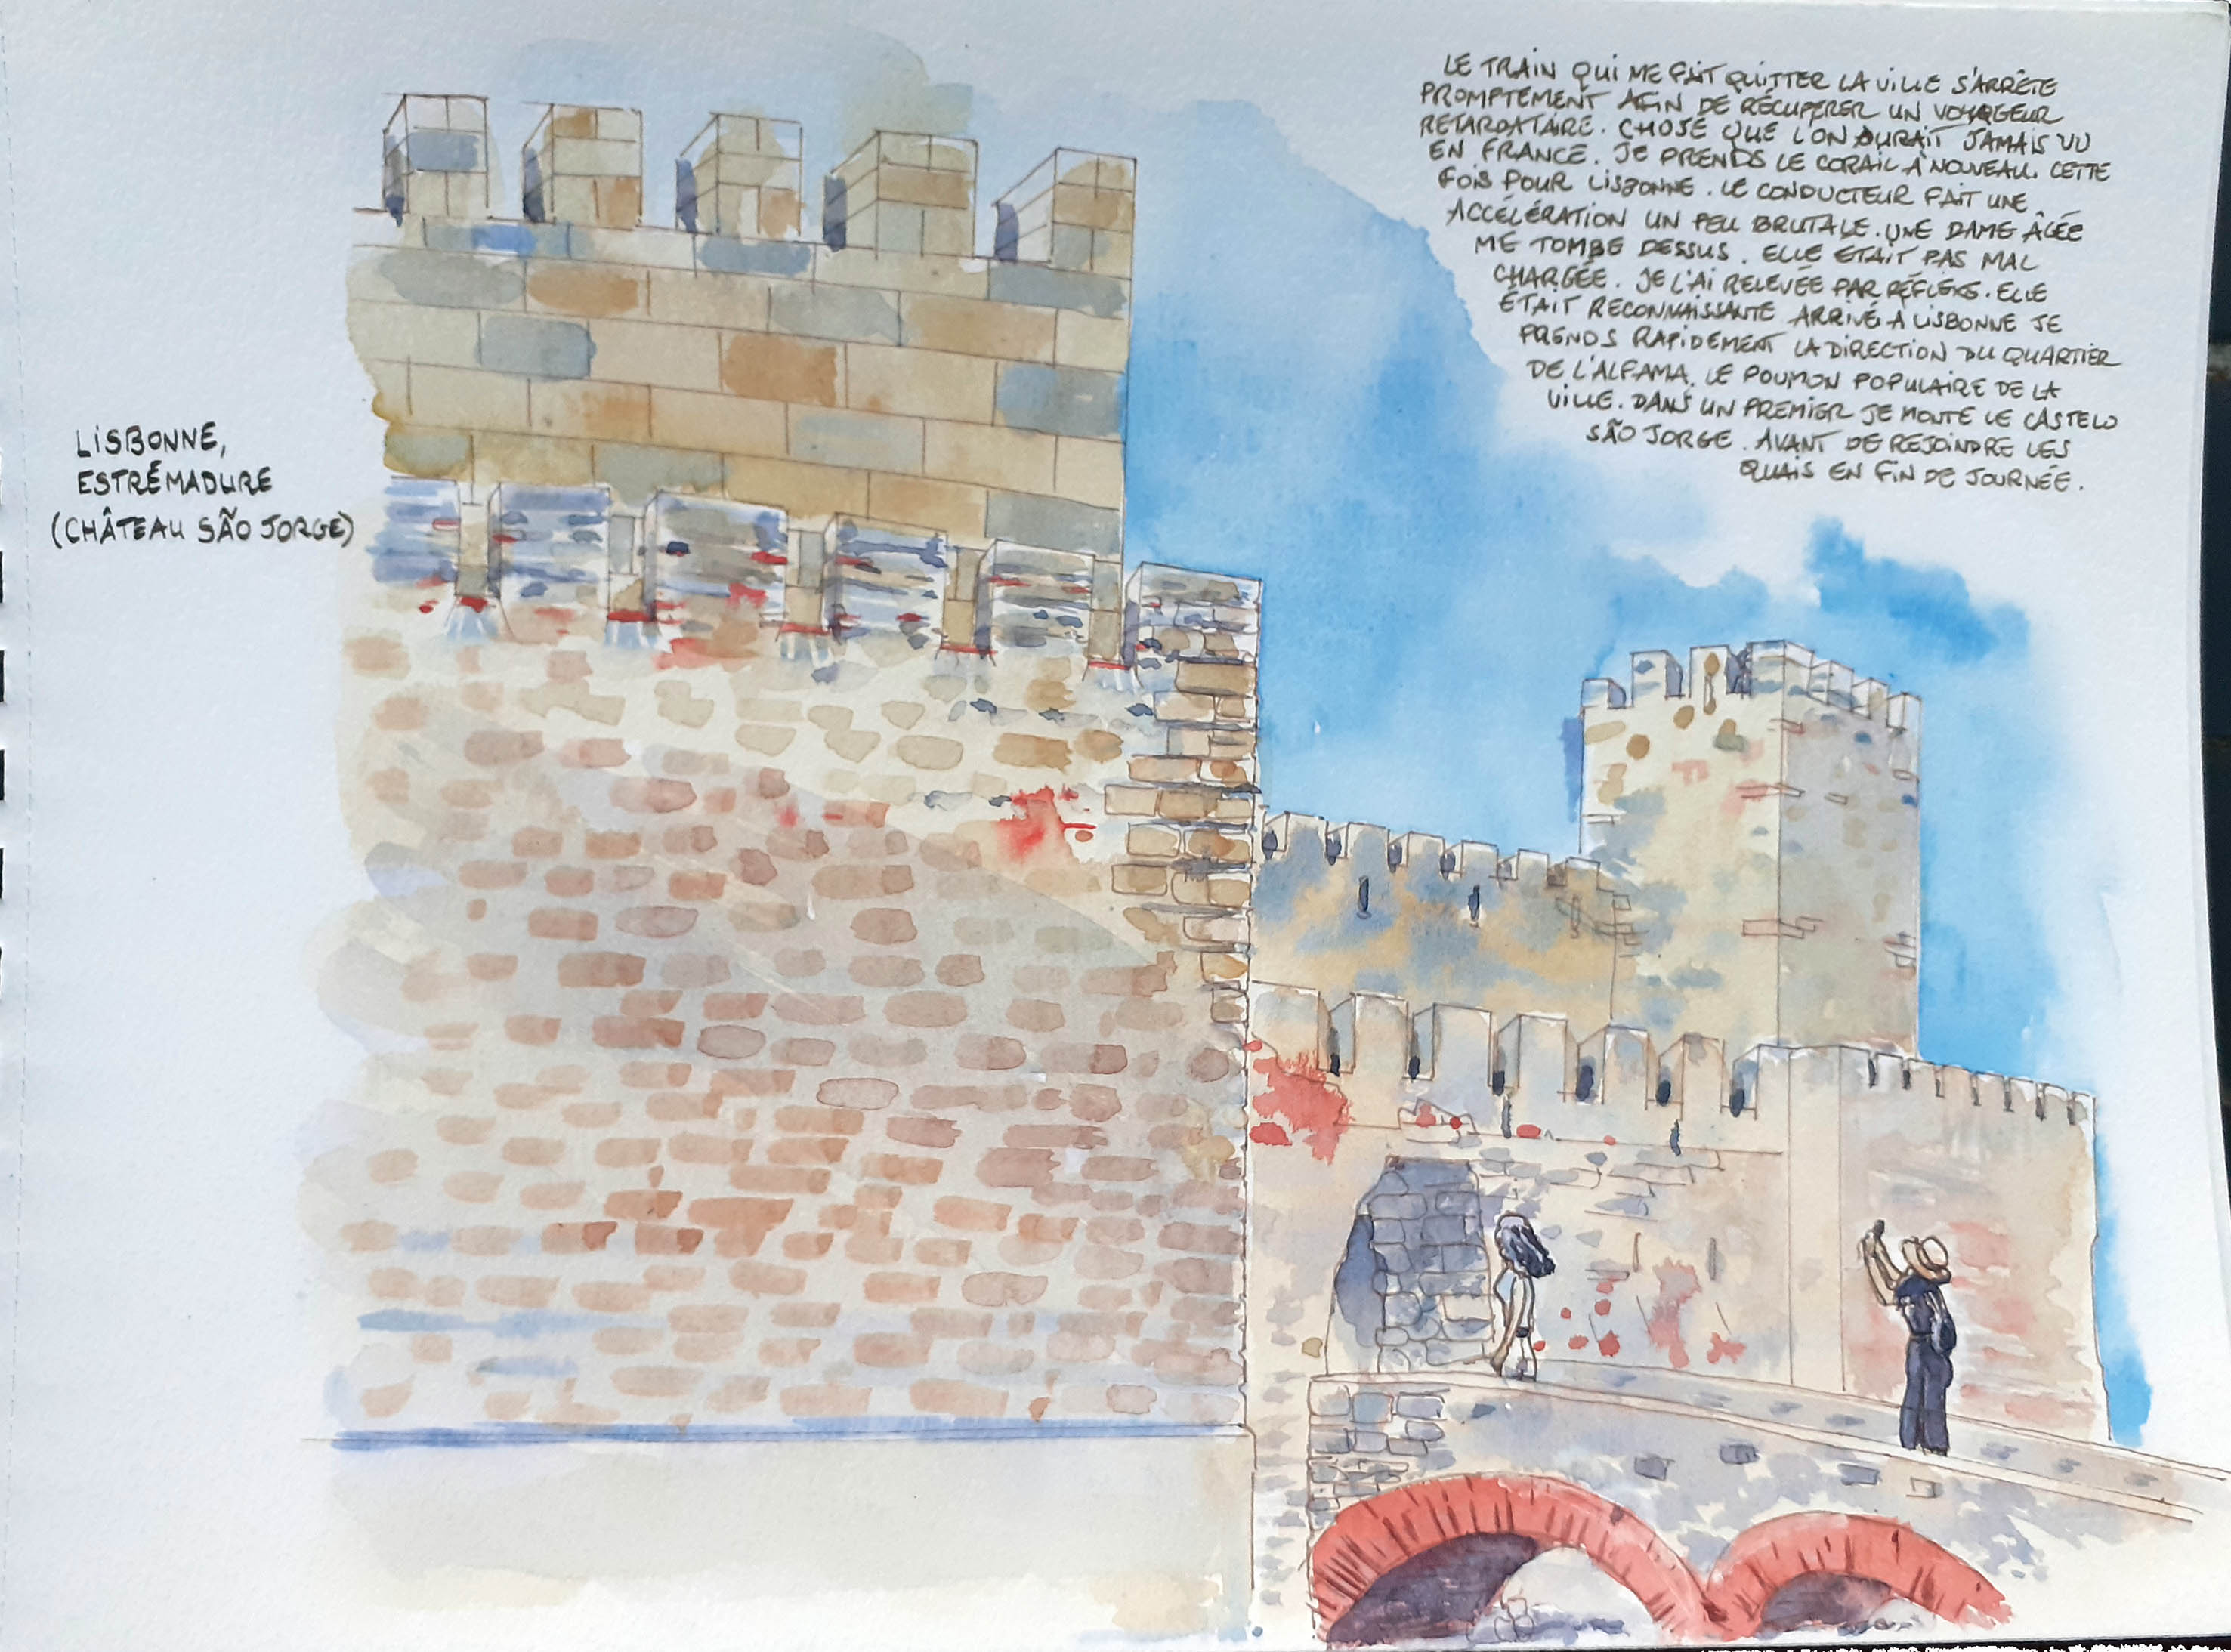 LISBONNE,
ESTRÊMADURE
(CHÂTEAU SÃO JORGE)
LE TRAIN QUI ME FAIT QUITTER LA VILLE S'ARRÊTE
PROMPTEMENT AFIN DE RÉCUPERER UN VOYAGEUR
RETARDATAIRE. CHOSE QUE L'ON AURAIT JAMAIS VU
EN FRANCE. JE PRENDS LE CORAIL À NOUVEAU. CETTE
FOIS POUR LISBONNE. LE CONDUCTEUR FAIT UNE
ACCÉLÉRATION UN PEU BRUTALE. UNE DAME ÂGÉE
ME TOMBE DESSUS. ELLE ÉTAIT PAS MAL
CHARGÉE. JE L'AI RELEVÉE PAR RÉFLEXE. ELLE
ÉTAIT RECONNAISSANTE ARRIVÉ À LISBONNE JE
PRENDS RAPIDEMENT LA DIRECTION DU QUARTIER
DE L'ALFAMA. LE POUMON POPULAIRE DE LA
VILLE. DANS UN PREMIER JE MONTE LE CASTELO
SÃO JORGE. AVANT DE REJOINDRE LES
QUAIS EN FIN DE JOURNÉE.